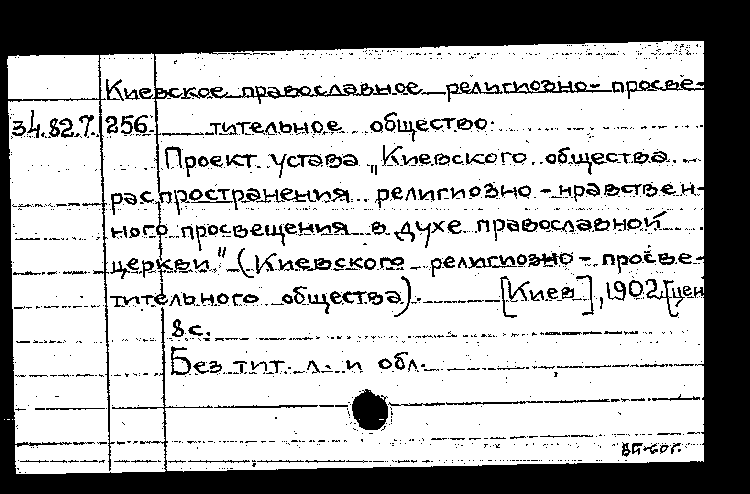 Киевское православное религиозно-просве-
34.82.7. 256. тительное общество.
Проект устава „Киевского общества
распространения религиозно-нравствен-
ного просвещения в духе православной
церкви" (Киевского религиозно-просве-
тительного общества). [Киев], 1902 [цен
8с.
Без тит. л. и обл.